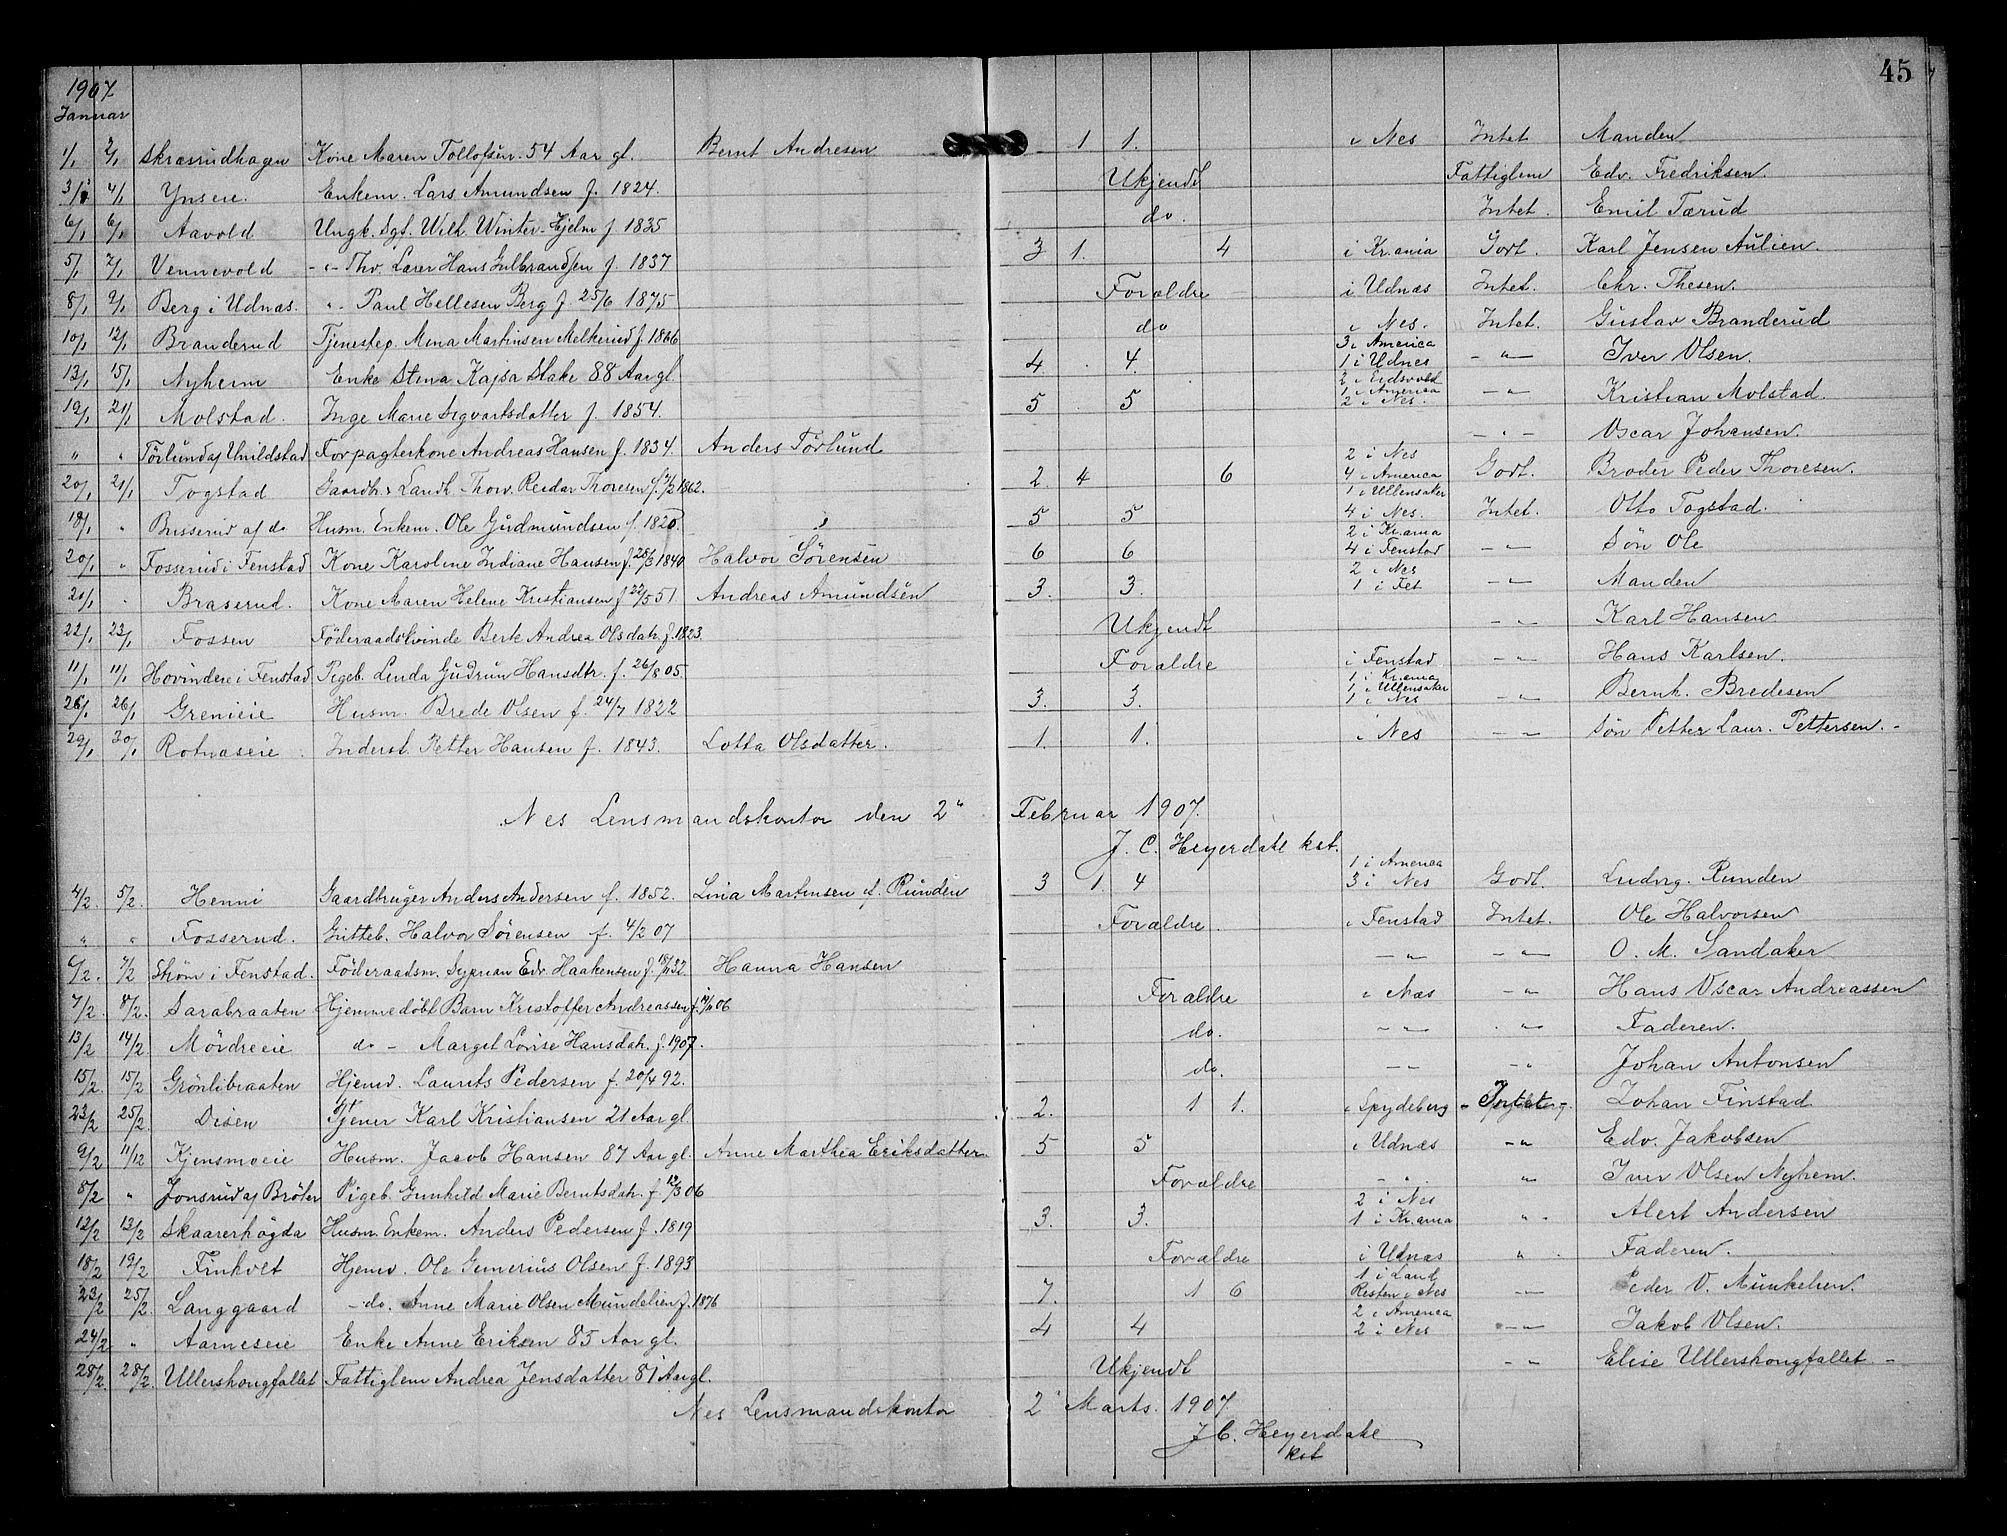 45
1907
Januar
1/1 2/1 Skrasrudhagen Kone Maren Tollofsen 54 Aar gl. Bernt Andresen 1 1. i Nes Intet Manden
3/1 4/1 Ynseie. Enkem. Lars Amundsen f. 1824. Ukjendt Fattiglem Edv. Fredriksen.
6/1 6/1 Aavold Ungk. Sgf. Wilh. Winter-Hjelm f 1835 do. Intet. Emil Tærud
5/1 7/1 Vennevold Thv. Lærer Hans Gulbrandsen f. 1837 3 1. 4 i Kr.ania Godt. Karl Jensen Aulien.
8/1 9/1 Berg i Udnæs. Paul Hellesen Berg f. 25/6 1875 Forældre i Udnæs Intet. Chr. Thesen.
10/1 12/1 Branderud Tjenestep. Mina Martinsen Melkerud f. 1866 do i Nes. Intet. Gustav Branderud
13/1 15/1 Nyheim Enke Stena Kajsa Stake 88 Aar gl. 4 4. 3 i America 1 i Udnes - " - Iver Olsen.
19/1 21/1 Molstad. Inge Marie Sigvartsdatter f. 1854. 5 5 2 i Eidsvold 1 i America 2 i Nes. - " - Kristian Molstad.
" " Törlund af Unildstad Forpagterkone Andreas Hansen f. 1834. Anders Törlund - " - Oscar Johansen.
20/1 21/1 Togstad Gaardbr. & Landh. Thorv. Reidar Thoresen f. 1862. 2. 4 6 2 i Nes 4 i America Godt. Broder Peder Thoresen.
18/1 " Busserud af do Husm. Enkem. Ole Gudmundsen f. 1820. 5 5 1 i Ullensaker 4 i Nes. Intet. Otto Togstad.
20/1 " Fosserud i Fenstad Kone Karoline Indiane Hansen f. 28/3 1840 Halvor Sørensen 6 6 2 i Kr.ania 4 i Fenstad - " - Søn Ole
21/1 " Braserud. Kone Maren Helene Kristiansen f 22/5 51 Andreas Amundsen 3. 3. 2 i Nes 1 i Fet - " - Manden
22/1 23/1 Fossen Föderaadskvinde Berte Andrea Olsdatr. f. 1823 Ukjendt - " - Karl Hansen
11/1 11/1 Hovindeie i Fenstad Pigeb. Linda Gudrun Hansdtr. f. 26/8 05. Forældre i Fenstad - " - Hans Karlsen.
26/1 26/1 Grenieie Husm. Brede Olsen f. 24/7 1822 3. 3. 1 i Kr.ania 1 i Ullensaker 1 i Nes - " - Bernh. Bredesen
29/1 30/1 Rotnæseie Inderst. Petter Hansen f. 1843. Lotta Olsdatter. 1. 1. i Nes - " - Søn Petter Laur. Pettersen. -
Nes Lensmandskontor den 2" Februar 1907.
J. C. Heyerdahl kst.
4/2. 5/2. Henni Gaardbruger Anders Andersen f. 1852. Lina Martinsen af Runden 3 1. 4 1 i America 3 i Nes Godt. Ludvig. Runden
" " Fosserud. Gutteb. Halvor Sørensen f. 4/2 07 Forældre. i Fenstad Intet. Ole Halvorsen
6/2. 7/2 Strøm i Fenstad. Föderaadsm. Syprian Edv. Haakensen f. 32. Hanna Hansen - " - - " - O. M. Sandaker
7/2. 8/2. Sarabraaten Hjemmedöbt Barn Kristoffer Andreassen f. 06 Forældre i Næs - " Hans Oscar Andreassen
13/2 14/2 Mördreeie do - Margit Lovise Hansdatr. f. 1907. do. - " - - " - Faderen.
15/2. 15/2 Grönlibraaten Hjemv. Laurits Pedersen f. 20/4 92. do. - " - - " Johan Antonsen
23/2 25/2. Disen Tjener Karl Kristiansen 21 Aar gl. 2. 1 1. i Spydeberg - Intet - Johan Finstad
9/2 11/12 Kjensmoeie Husm. Jacob Hansen 87 Aar gl. Anne Marthea Eriksdatter. 5 5 i Udnæs - " Edv. Jakobsen
8/2 " Jonsrud af Bröter Pigeb. Gunhild Marie Berntsdatr. f. 12/3 06 Forældre - " . " Iver Olsen Nyhem.
12/2 13/2 Skaarerhögda Husm. Enkem. Anders Pedersen f. 1819 3. 3. 2 i Nes 1 i Kr.ania " - Alert Andersen
18/2 19/2 Finholt Hjemv. Ole Gunerius Olsen f. 1893 Forældre i Udnæs " Faderen.
23/2 25/2. Langgaard - do. Anne Marie Olsen Mundelien f. 1876 7. 1 6 1 i Land Resten i Nes - " - Peder O. Munkelien.
24/2 " Aarneseie Enke Anne Eriksen 85 Aar gl. 4 4 2 i America 2 i Nes - " - Jakob Olsen.
28/2. 28/2. Ullershougfallet Fattiglem Andrea Jensdatter 81 Aar gl. Ukjendt - " Elise Ullershougfallet -
Nes Lensmandskontor 2' Marts. 1907
J C. Heyerdahl
kst